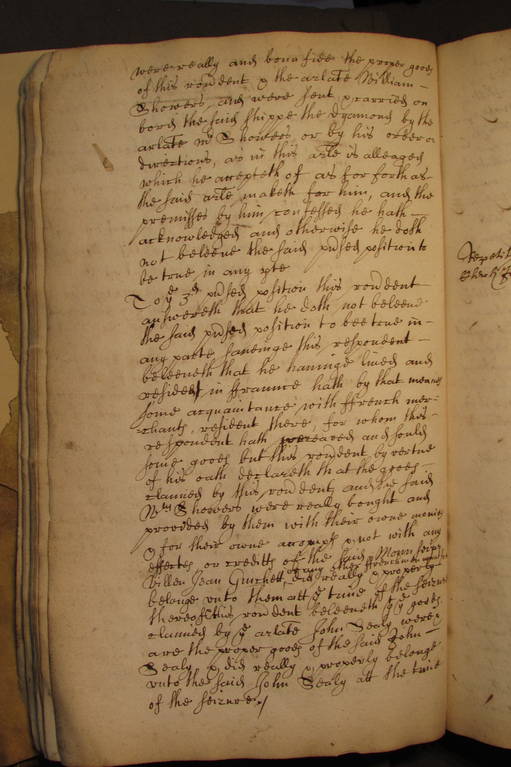 were really and bona fide the proper goods
of this rondent & the arlate William
Showers, and were sent & carried on
bord the said shippe the Dyamond by the
arlate Mr Showers, or by his order or
directions, as in this arle is alleaged
which he accepteth of as far forth as
the said arle maketh for him, and the
premisses by him confessed he hath
acknowledged and otherwise he doth
not beleeve the said pdsed position to
be true in any pte
To ye 3d pdsed position this rondent
answereth that he doth not beleeve
the said pdsed position to bee true in
any parte saveinge this respondent
beleeveth that he havinge lived and
resident in ffraunce hath by that meanes
some acquaintance with ffrench mer=
=chants, resident there, for whom this
respondent hath receaved and sould
some goods but this rondent by vertue
of his oath declareth that the goods
claimed by this rondent, and the said
Mr Showers were really bought and
provided by them with their owne monies
& for their owne accompt & not with any
effectes, or creditts of the said Monr
Villen Jean Guichett, or any other ffrenchmen and
did really & properly
belonge unto them att ye time of the seizure
thereof this rondent beleeveth yt ye goods
claimed by ye arlate John Sealy were &
are the proper goods of the said John
Sealy & did really & properly belonge
unto the said John Sealy att the time
of the seizure /